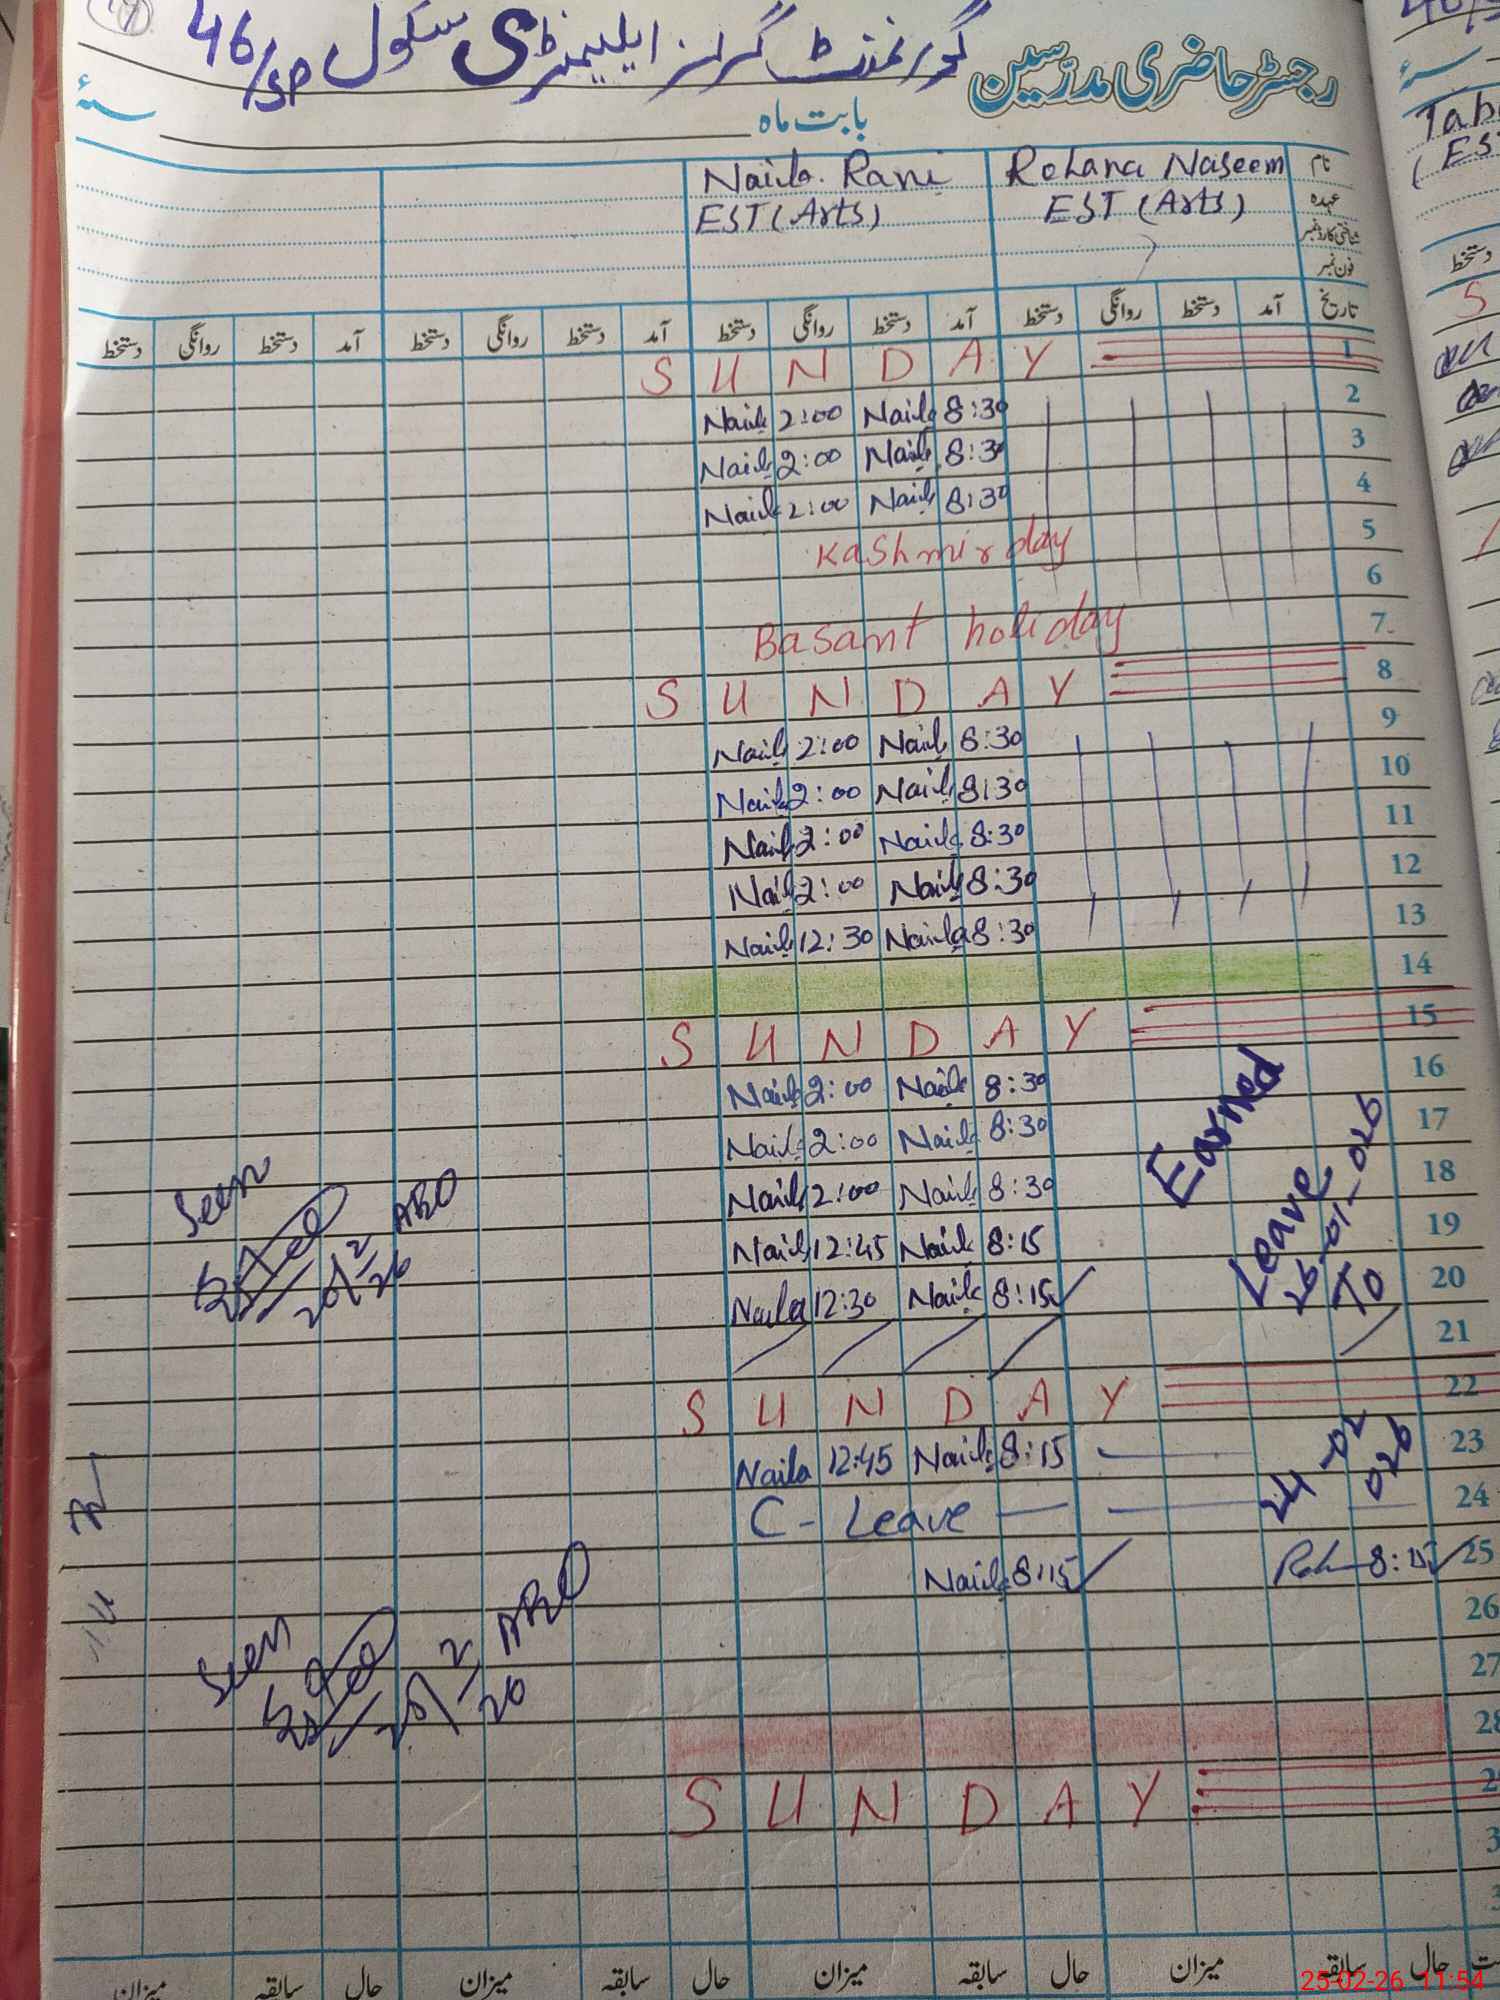 رجسٹر حاضری مدرسین گورنمنٹ گرلز ایلیمنٹری سکول 46/SP
بابت ماہ
نام Rohana Naseem Naila Rani
عہدہ EST (Arts) EST (Arts)
شناختی کارڈ نمبر
فون نمبر
تاریخ آمد دستخط روانگی دستخط آمد دستخط روانگی دستخط آمد دستخط روانگی دستخط آمد دستخط روانگی دستخط
SUNDAY 1
Naila 2:00 Naila 8:30 2
Naila 2:00 Naila 8:30 3
Naila 2:00 Naila 8:30 4
Kashmir day 5
6
Basant holiday 7
SUNDAY 8
Naila 2:00 Naila 8:30 9
Naila 2:00 Naila 8:30 10
Naila 2:00 Naila 8:30 11
Naila 2:00 Naila 8:30 12
Naila 12:30 Naila 8:30 13
14
SUNDAY 15
Naila 2:00 Naila 8:30 16
Naila 2:00 Naila 8:30 17
Naila 2:00 Naila 8:30 18
Naila 12:45 Naila 8:15 19
Naila 12:30 Naila 8:15 20
21
Earned
Leave
26-01-026
To
24-02
026
Seen
20/2/26
SUNDAY 22
Naila 12:45 Naila 8:15 23
C-Leave 24
Naila 8:15 8:15 25
26
27
28
Seen
SUNDAY
حال سابقہ میزان حال سابقہ میزان حال سابقہ میزان حال سابقہ میزان
25-02-26 11:54